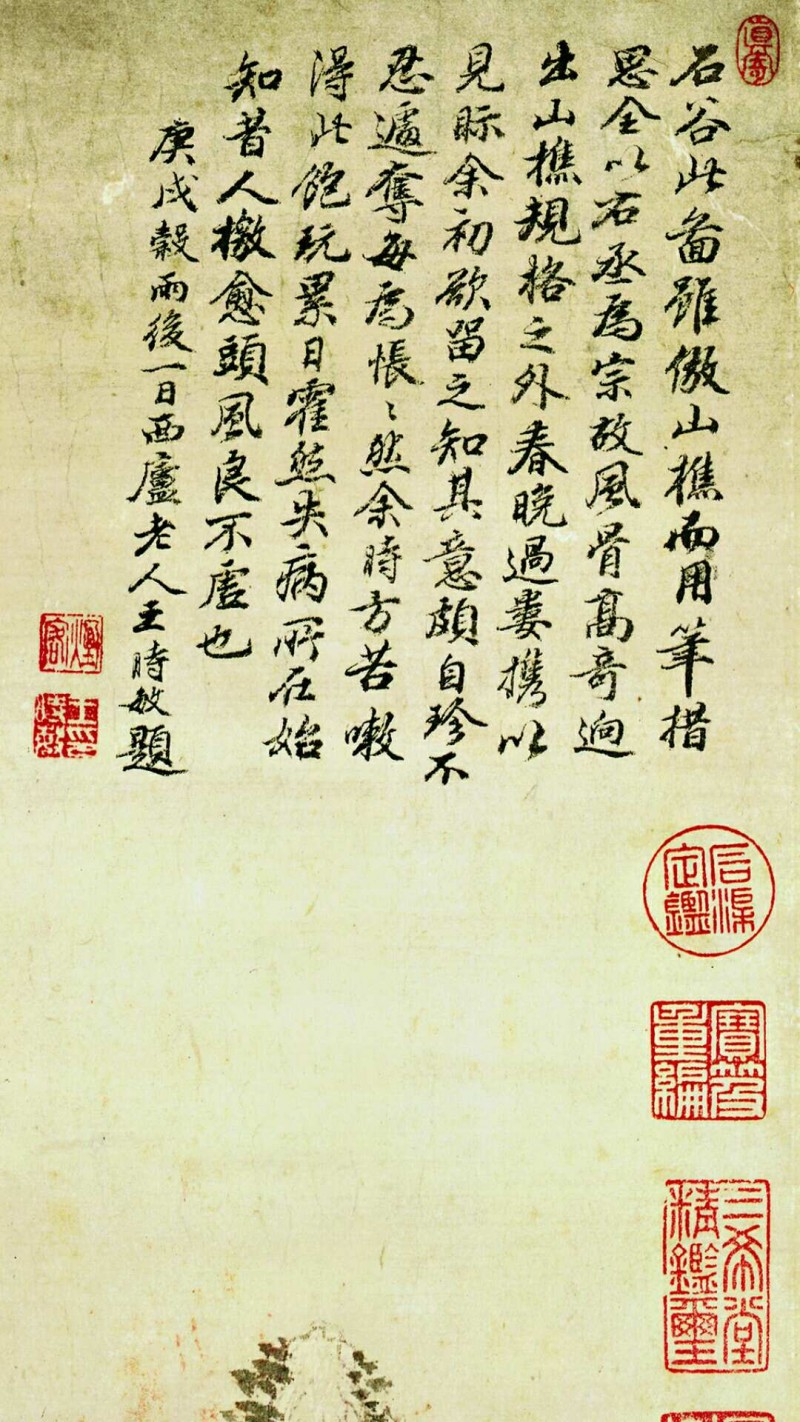 石谷此畨雖倣山樵而用筆措
思全以右丞為宗故風骨髙竒逈
出山樵規格之外春晩過婁携以
見眎余初欲留之知其意頗自珍不
忍遽奪每為悵〻然余時方苦嗽
得此飽玩累日霍然失病所在始
知昔人檄愈頭風良不虛也
庚戌榖雨後一日西廬老人王時敏題
石渠定鑑
寶笈重編
三希堂精鑑璽